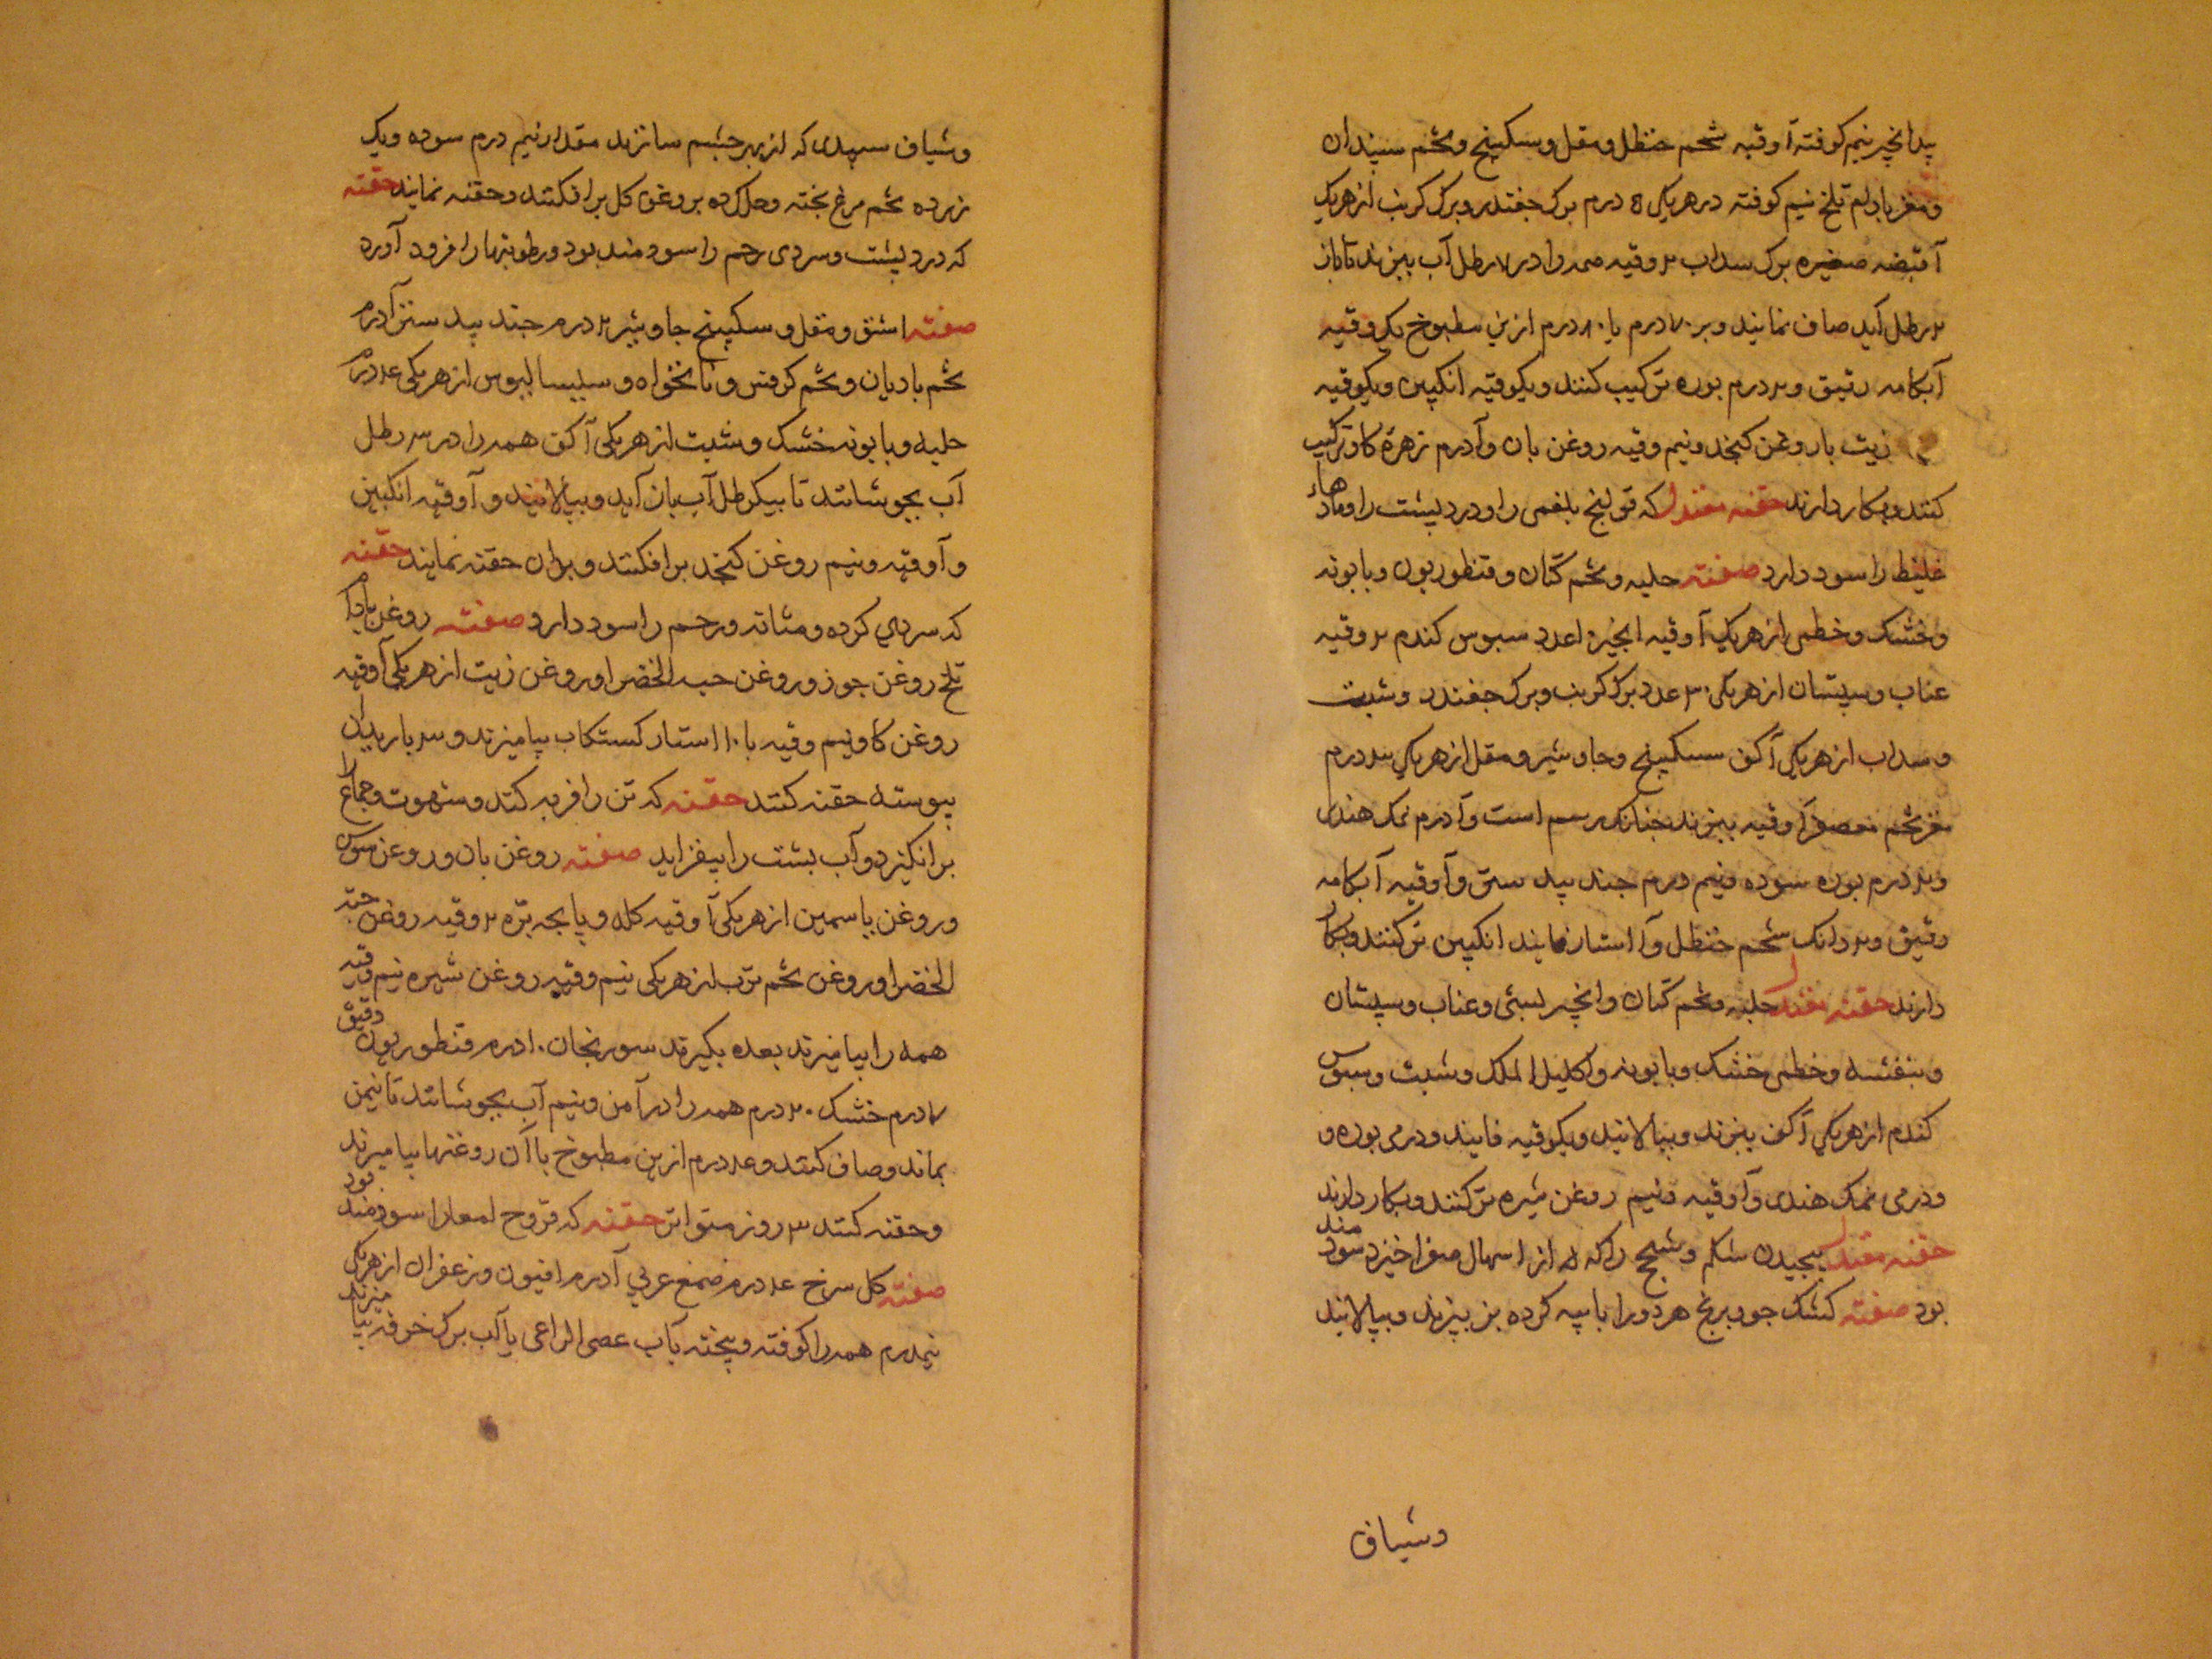 پدانجیر نیم کوفته آ وقیه شحم حنظل و مقل و سکبینج و تخم سپندان
و مغز بادام تلخ نیم کوفته در هر یکی ۵ درم برک جغندر و برک کرنب از هر یک
آ قبضه صغیره برک سداب ۲ وقیه همه را در ۷ رطل آب بپزند تا باز
۲ رطل آید صاف نمایند و بر ۷۰ درم یا ۸۰ درم ازین مطبوخ یک وقیه
آبکامه رقیق و ۲ درم بوره ترکیب کنند و یکوقیه انکبین و یکوقیه
زیت با روغن کنجد و نیم وقیه روغن بان و آ درم زهرة کاو ترکیب
کنند و بکار دارند حقنه معتدل که قولنج بلغمی را و درد پشت را و مادهاء
غلیظ را سود دارد صفته حلبه و تخم کتان و قنطوریون و بابونه
و خشک و خطمی از هر یک آ وقیه انجیر ۱۰ عدد سبوس کندم ۲ وقیه
عناب و سپستان از هر یکی ۳۰ عدد برک کرنب و برک جغندر و شبت
و سداب از هر یکی آ کف سکبینج و جاوشیر و مقل از هر یکی ۳ درم
مغز تخم معصفر آ وقیه بپزند جنانک رسم است و آ درم نمک هندی
و ۲ درم بوره سوده و نیم درم جند بیدستر و آ وقیه آبکامه
رقیق و ۲ دانک شحم حنظل و آ استار فانید انکبین تر کنند و بکار
دارند حقنه معتدل حلبه و تخم کتان و انجیر بستی و عناب و سپستان
و بنفشه و خطمی خشک و بابونه و اکلیل الملک و شبت و سبوس
کندم از هر یکی آ کف بپزند و بپالایند و یکوقیه فانید و درمی بوره و
و درمی نمک هندی و آ وقیه و نیم روغن شیره تر کنند و بکار دارند
حقنه معتدل پیچیدن شکم و سحج را که از اسهال صفرا خیزد سود مند
بود صفته کشک جو و برنج هر دو را با پیه کرده بز بپزند و بپالایند
وشیاف
وشیاف سپیدی که از بهر جشم سازند مقدار نیم درم سوده و یک
زرده تخم مرغ پخته و حل کرده بروغن کل برافکنند و حقنه نمایند حقنه
که درد پشت و سردی رحم را سودمند بود و رطوبتها را فرود آورد
صفته اشق و مقل و سکبینج جاوشیر ۲ درم جند بیدستر آ درم
تخم بادیان و تخم کرفس و نانخواه و سیسالیوس از هر یکی ۴ درم
حلبه و بابونه خشک و شبت از هر یکی آ کف همه را در ۳ رطل
آب بجوشانند تا بیکرطل آب باز آید و بپالایند و آ وقیه انکبین
و آ وقیه و نیم روغن کنجد برافکنند و بران حقنه نمایند حقنه
که سردی کرده و مثانه و رحم را سود دارد صفته روغن بادام
تلخ روغن جوز و روغن حب الخضرا و روغن زیت از هر یکی آ وقیه
روغن کاو نیم وقیه با ۱۰ استار کستکاب بیامیزند و ۳ بار بدان
پیوسته حقنه کنند حقنه که تن را فربه کند و شهوت و جماع را
برانکیزد و آب پشت را بیفزاید صفته روغن بان و روغن سوس
و روغن یاسمین از هر یکی آ وقیه کله و پایجه بره ۲ وقیه روغن حبة
الخضرا و روغن تخم ترب از هر یکی نیم وقیه روغن شیره نیم وقیه
همه را بیامیزند بعده بکیرند سورنجان ۱۰ درم قنطوریون دقیق
۷ درم خشک ۲۰ درم همه را در آ من و نیم آب بجوشانند تا نیمن
بماند و صاف کنند و ۴ درم ازین مطبوخ با آن روغنها بیامیزند
و حقنه کنند ۳ روز متواتر حقنه که قروح امعا را سودمند بود
صفته کل سرخ ۴ درم صمغ عربی آ درم افیون و زعفران از هر یکی
نیمدرم همه را کوفته و بیخته بآب عصی الراعی یا آب برک خرفه بیامیزند